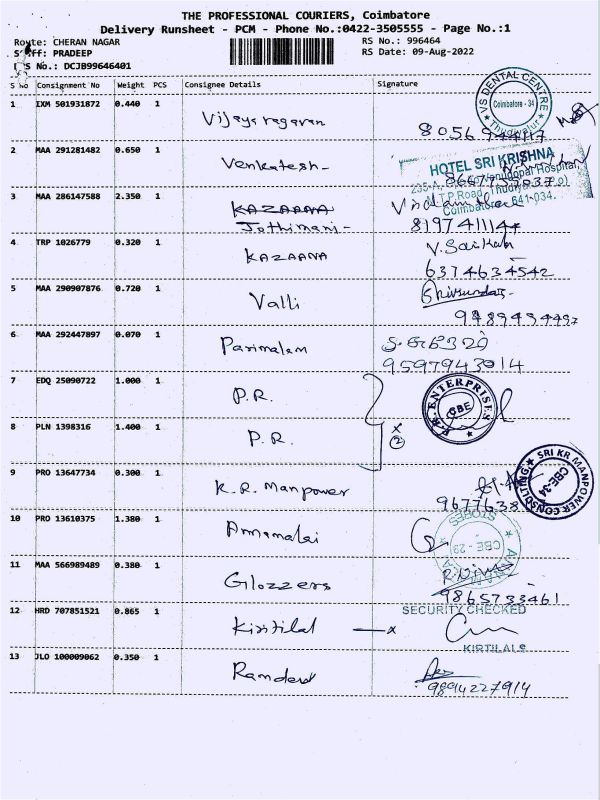 THE PROFESSIONAL COURIERS, Coimbatore
Delivery Runsheet - PCM - Phone No.:0422-3505555 - Page No.:1
Route: CHERAN NAGAR RS No.: 996464
Staff: PRADEEP RS Date: 09-Aug-2022
No.: DCJB99646401
S No Consignment No Weight PCS Consignee Details Signature
1 IXM 501931872 0.440 1 Vijaysragavan
VS DENTAL CENTRE Coimbatore - 34
2 MAA 291281482 0.650 1 Venkatesh-
HOTEL SRI KRISHNA
Coimbatore- 641-034.
3 MAA 286147588 2.350 1 KAZAANA
Jothimani- 8197411144
4 TRP 1026779 0.320 1 KAZAANA
6374634542
5 MAA 290907876 0.720 1 Valli
9489434497
6 MAA 292447897 0.070 1 Parimalam
9597943014
7 EDQ 25090722 1.000 1 P.R.
P.R. ENTERPRISES CBE
8 PLN 1398316 1.400 1 P.R.
x 2
9 PRO 13647734 0.300 1 K.R. Manpower
SRI KR MANPOWER CONSULTING CBE-34
10 PRO 13610375 1.380 1 Annamalai
STORES CBE - 29
11 MAA 566989489 0.380 1 Glozzers
9865733461
SECURITY CHECKED
12 HRD 707851521 0.865 1 Kirtilal —x
KIRTILALS
13 JLO 100009062 0.350 1 Ramdev
9894227914